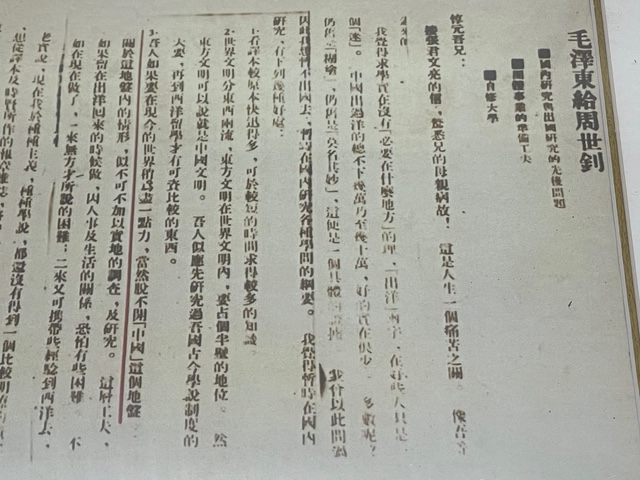 毛澤東給周世釗
國內研究與出國研究的先後問題
事業的準備工夫
自修大學
惇元吾兄：
接張君文亮的信，驚悉兄的母親病故！這是人生一個痛苦之關。像吾等
我覺得求學實在沒有「必要在什麼地方」的理，「出洋」兩字，在好些人只是
個「迷」。中國出過洋的總不下幾萬乃至幾十萬，好的實在很少。多數呢？
仍舊是「糊塗」，仍舊是「莫名其妙」，這便是一個具體的證據。我曾以此問過
因此我想暫不出國去，暫時在國內研究各種學問的綱要。我覺得暫時在國內
研究，有下列幾種好處：
1.看譯本較原本快迅得多，可於較短的時間求得較多的知識。
2.世界文明分東西兩流，東方文明在世界文明內，要占個半壁的地位。然
東方文明可以說就是中國文明。吾人似應先研究過吾國古今學說制度的
大要，再到西洋留學才有可資比較的東西。
3.吾人如果要在現今的世界稍爲盡一點力，當然脫不開「中國」這個地盤
關於這地盤內的情形，似不可不加以實地的調查，及研究。這層工夫，
如果留在出洋回來的時候做，因人事及生活的關係，恐怕有些困難。不
如在現在做了，一來無方才所說的困難；二來又可携帶些經驗到西洋去，
老實說，現在我於種種主義，種種學說，都還沒有得到一個比較明
想從譯本及時賢所作的報章雜誌